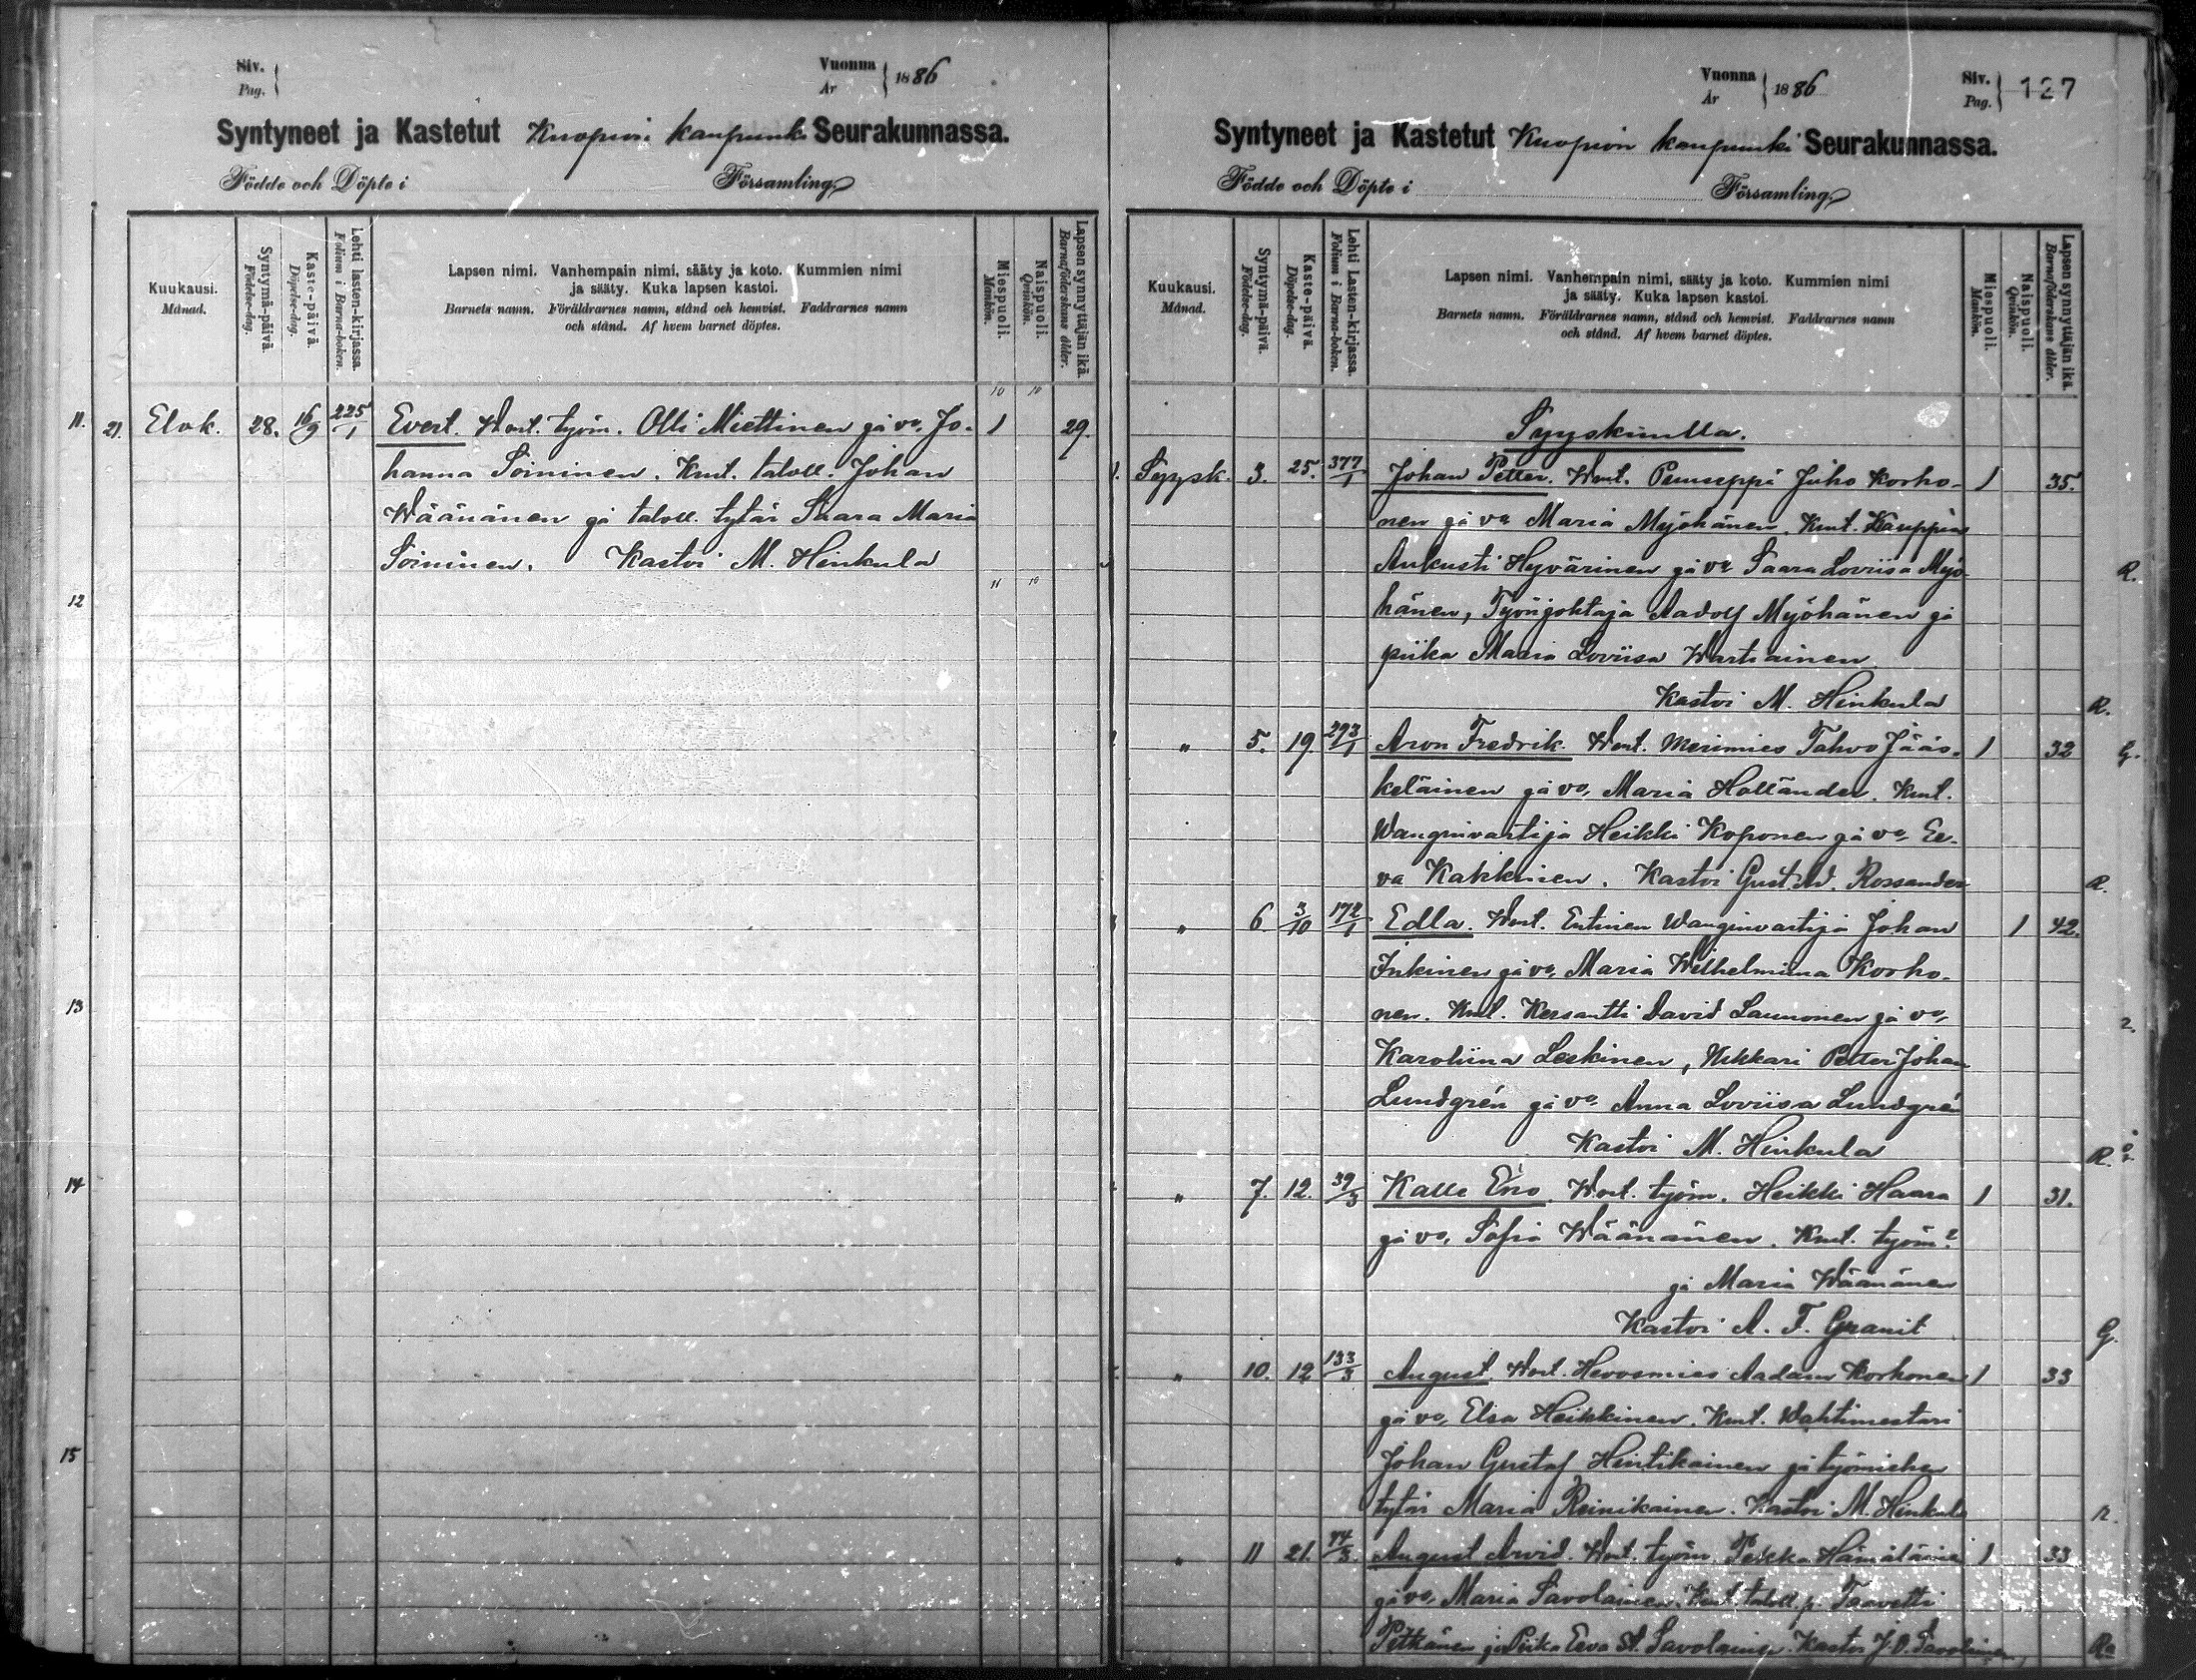 Siv.
Pag.
Vuonna
År
1886
Syntyneet ja Kastetut Kuopion kaupunki Seurakunnassa.
Födde och Döpte i Församling
Kuukausi.
Månad.
Syntymä-päivä.
Födelse-dag.
Kaste-päivä.
Döpelse-dag.
Lehti lasten-kirjassa.
Folium i Barna-boken.
Lapsen nimi. Vanhempain nimi, sääty ja koto. Kummien nimi
ja sääty. Kuka lapsen kastoi.
Barnets namn. Föräldrarnes namn, stånd och hemvist. Faddrarnes namn
och stånd. Af hvem barnet döptes.
Miespuoli.
Mankön.
Naispuoli.
Qvinkön.
Lapsen synnyttäjän ikä.
Barnaföderskans ålder.
10 10
11. 21. Elok. 28. 16/9 225/1 Evert. Wmt. työm. Olli Miettinen ja vo, Jo- 1 29.
hanna Soininen. Kmt. taloll. Johan
Wäänänen ja taloll. tytär Saara Maria
Soininen. Kastoi M. Hinkula
11 10
12
13
14
15
Vuonna
År
1886
Siv.
Pag.
127
Syntyneet ja Kastetut Kuopion kaupunki Seurakunnassa.
Födde och Döpte i Församling
Kuukausi.
Månad.
Syntymä-päivä.
Födelse-dag.
Kaste-päivä.
Döpelse-dag.
Lehti Lasten-kirjassa.
Folium i Barna-boken.
Lapsen nimi. Vanhempain nimi, sääty ja koto. Kummien nimi
ja sääty. Kuka lapsen kastoi.
Barnets namn. Föräldrarnes namn, stånd och hemvist. Faddrarnes namn
och stånd. Af hvem barnet döptes.
Miespuoli.
Mankön.
Naispuoli.
Qvinkön.
Lapsen synnyttäjän ikä.
Barnaföderskans ålder.
Syyskuulla.
Syysk. 3. 25. 377/1 Johan Petter. Wmt. Puuseppä Juho Korho- 1 35.
nen ja vo Maria Myöhänen. Kmt. Kauppias
Aukusti Hyvärinen ja vo Saara Loviisa Myö-
hänen, Työnjohtaja Aadolf Myöhänen ja R.
piika Maria Loviisa Wartiainen
Kastoi M. Hinkula R.
" 5. 19. 293/1 Aron Fredrik. Wmt. Merimies Tahvo Jääs- 1 32 G.
keläinen ja vo, Maria Holländer. Kmt.
Wanginvartija Heikki Koponen ja vo, Ee-
va Kakkinen. Kastoi Gust. Ad. Rossander R.
" 6. 3/10 172/1 Edla. Wmt. Entinen Wanginvartija Johan 1 42.
Inkinen ja vo, Maria Wilhelmiina Korho-
nen. Kmt. Kersantti David Launonen ja vo,
Karoliina Leskinen, Nikkari Petter Johan
Lundgrén ja vo, Anna Loviisa Lundgrén
Kastoi M. Hinkula R.
" 7. 12. 39/3 Kalle Eno. Wmt. työm. Heikki Haara 1 31.
ja vo, Sofia Wäänänen. Kmt. työm.
ja Maria Wäänänen
Kastoi A. F. Granit G.
" 10. 12 133/3 August. Wmt. Hevosmies Aadam Korhonen 1 33
ja vo, Elsa Heikkinen. Kmt. Wahtimestari
Johan Gustaf Hintikainen ja työmiehen
tytär Maria Reinikainen. Kastoi M. Hinkula R.
" 11 21. 74/3. August Arvid. Wmt. työm. Pekka Hämäläinen 1 33
ja vo, Maria Savolainen. Kmt. taloll. p. Taavetti
Pitkänen ja Piika Eeva St. Savolainen. Kastoi J. O. Savolainen Ra